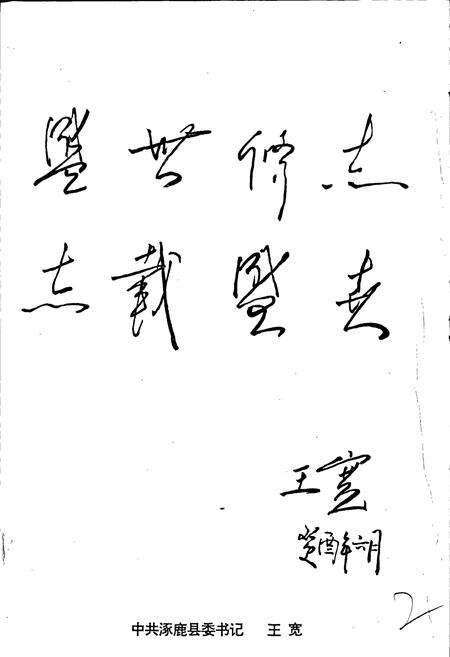 盛世修志
志载盛世
王宽
癸酉年六月
2
中共涿鹿县委书记 王 宽